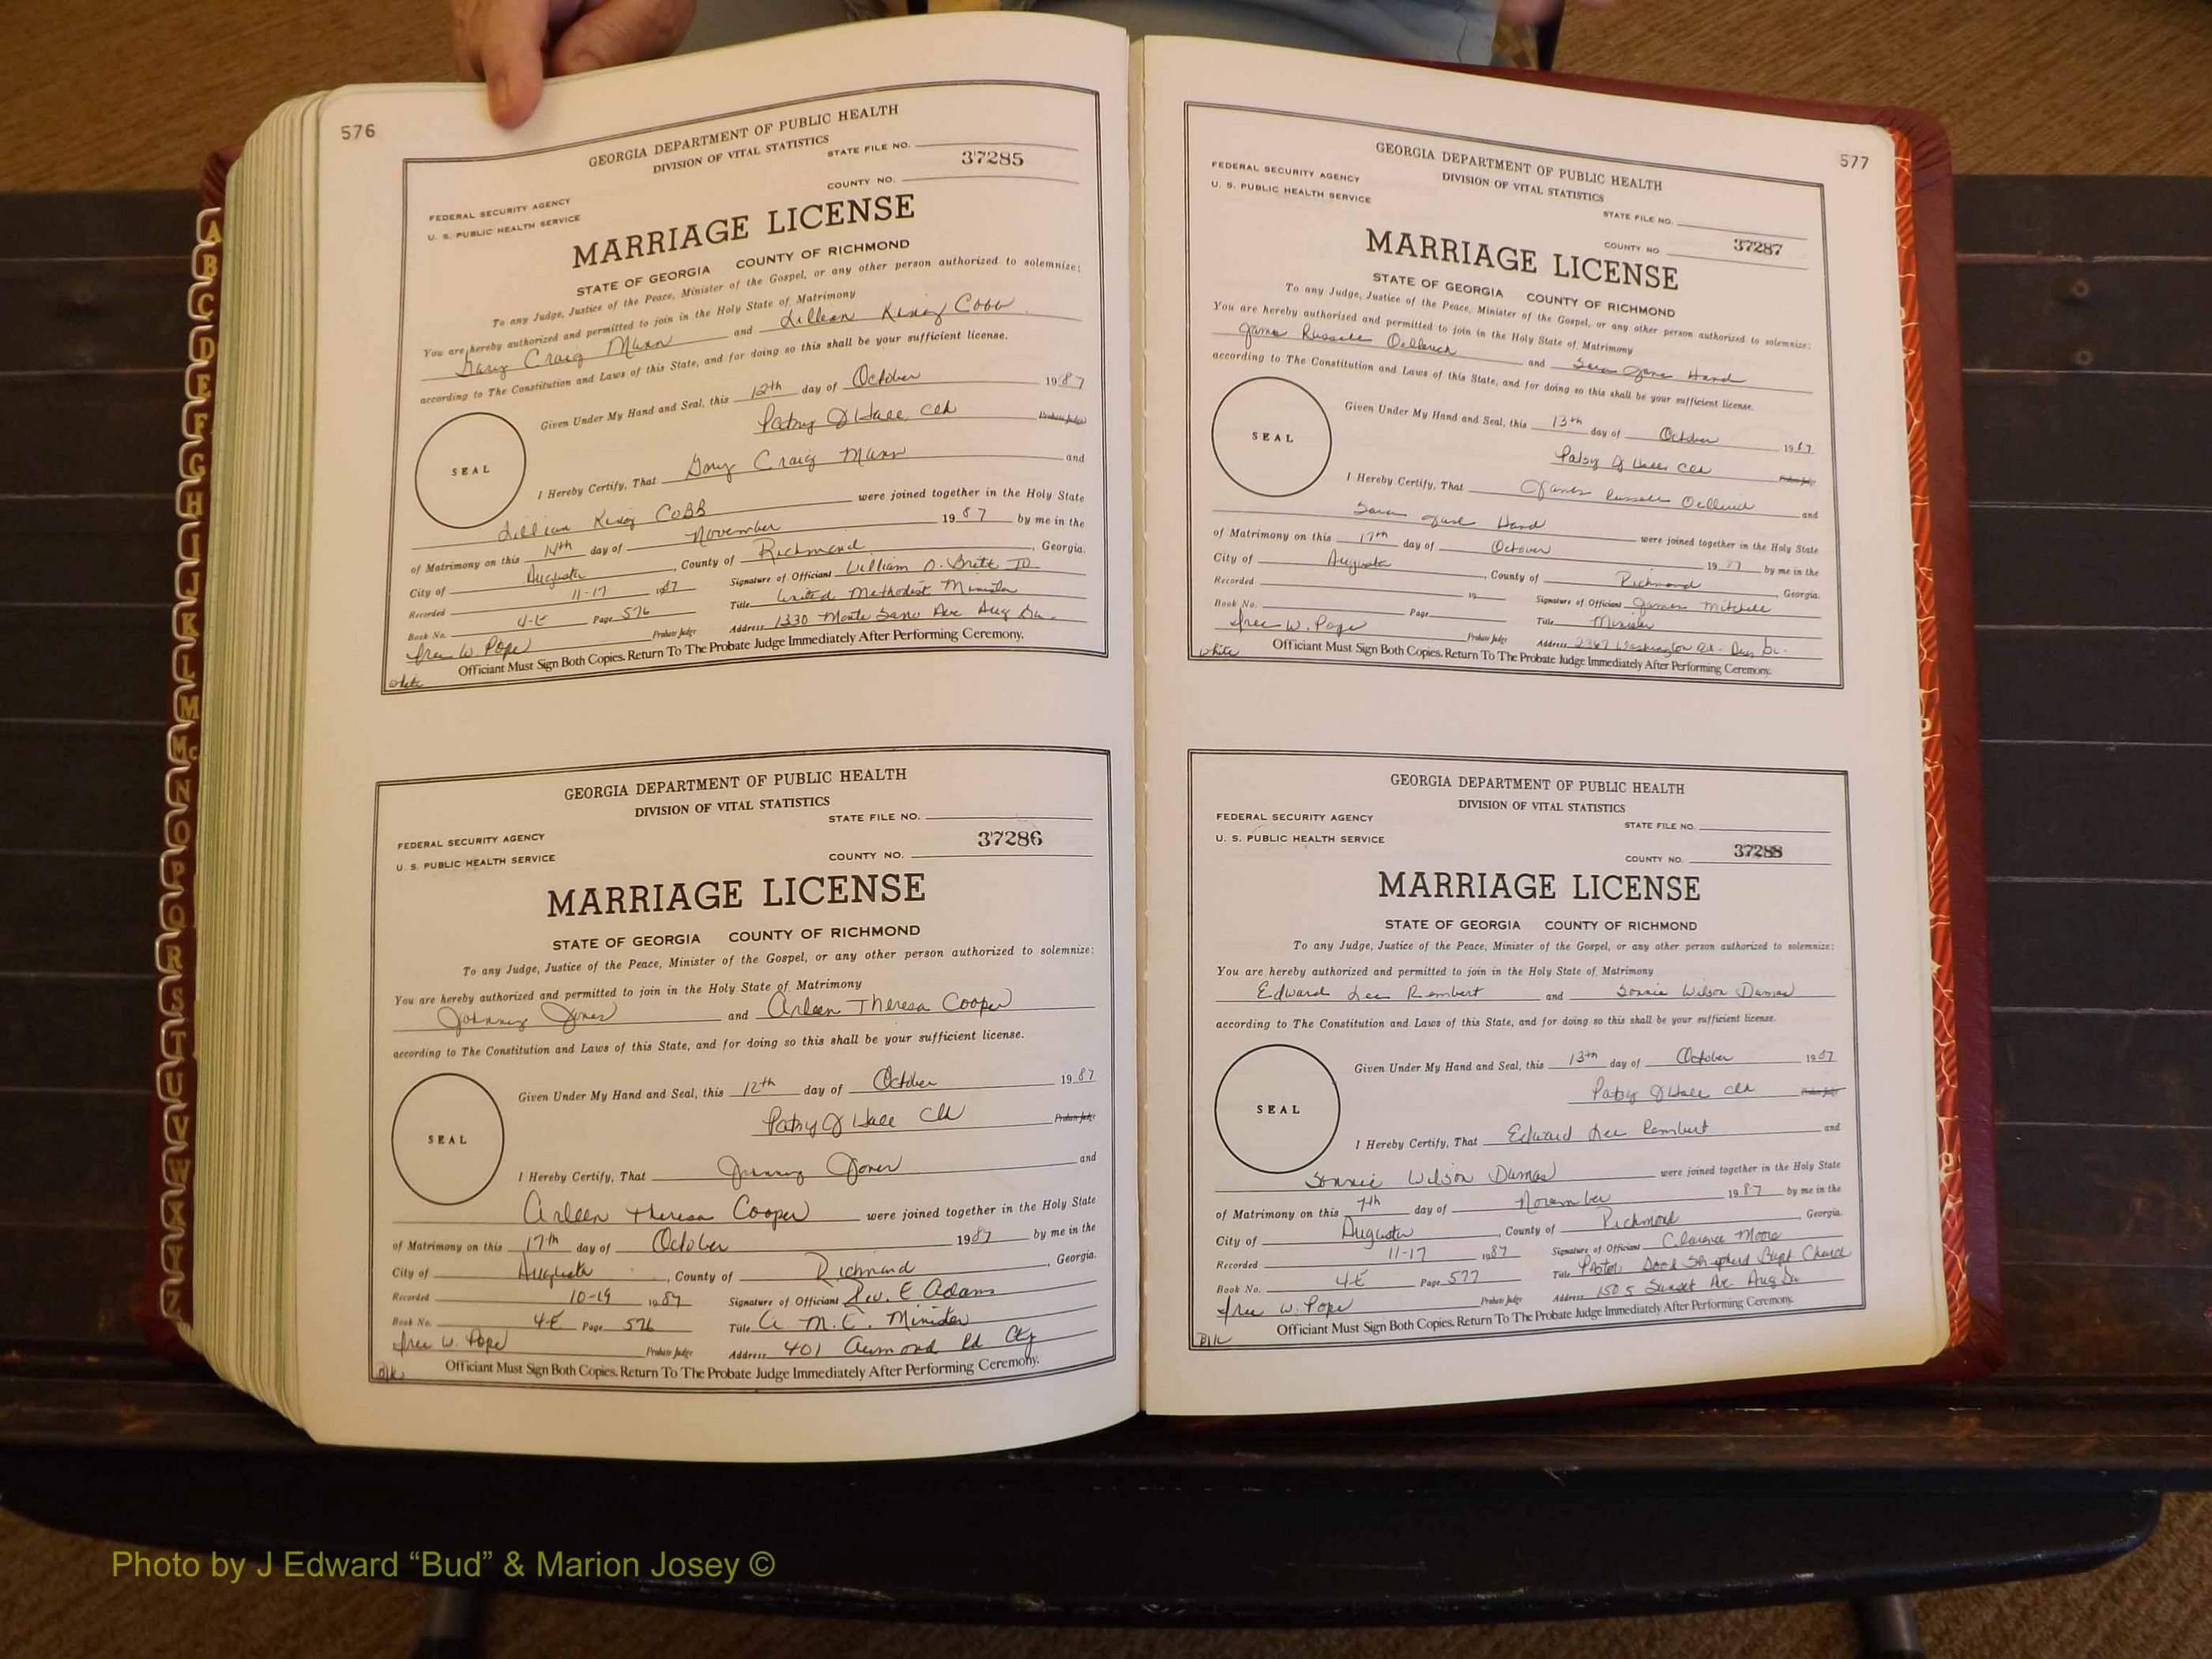 576
GEORGIA DEPARTMENT OF PUBLIC HEALTH
DIVISION OF VITAL STATISTICS
STATE FILE NO.
37285
COUNTY NO.
FEDERAL SECURITY AGENCY
U. S. PUBLIC HEALTH SERVICE
MARRIAGE LICENSE
STATE OF GEORGIA COUNTY OF RICHMOND
To any Judge, Justice of the Peace, Minister of the Gospel, or any other person authorized to solemnize:
You are hereby authorized and permitted to join in the Holy State of Matrimony
Gary Craig Mann and Lillian King Cobb
according to The Constitution and Laws of this State, and for doing so this shall be your sufficient license.
Given Under My Hand and Seal, this 12th day of October 1987
Patsy J Hall Clk Probate Judge
SEAL
I Hereby Certify, That Gary Craig Mann and
Lillian King Cobb were joined together in the Holy State
of Matrimony on this 14th day of November 1987 by me in the
City of Augusta, County of Richmond, Georgia.
Recorded 11-17 1987 Signature of Officiant William D. Britt III
Book No. 4-E Page 576 Title United Methodist Minister
Probate Judge Address 1330 Monte Sano Ave Aug Ga.
W. Pope
Officiant Must Sign Both Copies. Return To The Probate Judge Immediately After Performing Ceremony.
white
GEORGIA DEPARTMENT OF PUBLIC HEALTH
DIVISION OF VITAL STATISTICS
STATE FILE NO.
FEDERAL SECURITY AGENCY
37286
U. S. PUBLIC HEALTH SERVICE
COUNTY NO.
MARRIAGE LICENSE
STATE OF GEORGIA COUNTY OF RICHMOND
To any Judge, Justice of the Peace, Minister of the Gospel, or any other person authorized to solemnize:
You are hereby authorized and permitted to join in the Holy State of Matrimony
Johnny Jones and Arleen Theresa Cooper
according to The Constitution and Laws of this State, and for doing so this shall be your sufficient license.
Given Under My Hand and Seal, this 12th day of October 1987
Patsy J Hall Clk Probate Judge
SEAL
I Hereby Certify, That Johnny Jones and
Arleen Theresa Cooper were joined together in the Holy State
of Matrimony on this 17th day of October 1987 by me in the
City of Augusta, County of Richmond, Georgia.
Recorded 10-19 1987 Signature of Officiant Rev. E Adams
Book No. 4-E Page 576 Title A. M. E. Minister
W. Pope Probate Judge Address 401 Aumond Rd
Officiant Must Sign Both Copies. Return To The Probate Judge Immediately After Performing Ceremony.
Blk
577
GEORGIA DEPARTMENT OF PUBLIC HEALTH
DIVISION OF VITAL STATISTICS
FEDERAL SECURITY AGENCY
U. S. PUBLIC HEALTH SERVICE
STATE FILE NO.
COUNTY NO. 37287
MARRIAGE LICENSE
STATE OF GEORGIA COUNTY OF RICHMOND
To any Judge, Justice of the Peace, Minister of the Gospel, or any other person authorized to solemnize:
You are hereby authorized and permitted to join in the Holy State of Matrimony
James Russell and Sara Jane Hand
according to The Constitution and Laws of this State, and for doing so this shall be your sufficient license.
Given Under My Hand and Seal, this 13th day of October 1987
Patsy J Hall Clk Probate Judge
SEAL
I Hereby Certify, That James Russell and
Sara Jane Hand were joined together in the Holy State
of Matrimony on this 17th day of October 1987 by me in the
City of Augusta, County of Richmond Georgia.
Recorded 19 Signature of Officiant James Mitchell
Book No. Page Title Minister
W. Pope Probate Judge Address 2367 Washington Rd. Aug Ga.
Officiant Must Sign Both Copies. Return To The Probate Judge Immediately After Performing Ceremony.
white
GEORGIA DEPARTMENT OF PUBLIC HEALTH
DIVISION OF VITAL STATISTICS
FEDERAL SECURITY AGENCY
STATE FILE NO.
U. S. PUBLIC HEALTH SERVICE
COUNTY NO. 37288
MARRIAGE LICENSE
STATE OF GEORGIA COUNTY OF RICHMOND
To any Judge, Justice of the Peace, Minister of the Gospel, or any other person authorized to solemnize:
You are hereby authorized and permitted to join in the Holy State of Matrimony
Edward Lee Rembert and Wilson Dumas
according to The Constitution and Laws of this State, and for doing so this shall be your sufficient license.
Given Under My Hand and Seal, this 13th day of October 1987
Patsy J Hall Clk Probate Judge
SEAL
I Hereby Certify, That Edward Lee Rembert and
Wilson Dumas were joined together in the Holy State
of Matrimony on this 7th day of November 1987 by me in the
City of Augusta, County of Richmond, Georgia.
Recorded 11-17 1987 Signature of Officiant Clarence Moore
Book No. 4-E Page 577 Title Pastor Good Shepherd Bapt Church
W. Pope Probate Judge Address 1505 Sunset Ave. Aug Ga
Officiant Must Sign Both Copies. Return To The Probate Judge Immediately After Performing Ceremony.
Blk
A
B
C
D
E
F
G
H
I
J
K
L
M
Mc
N
O
P
Q
R
S
T
U
V
W
X
Y
Z
Photo by J Edward “Bud” & Marion Josey ©